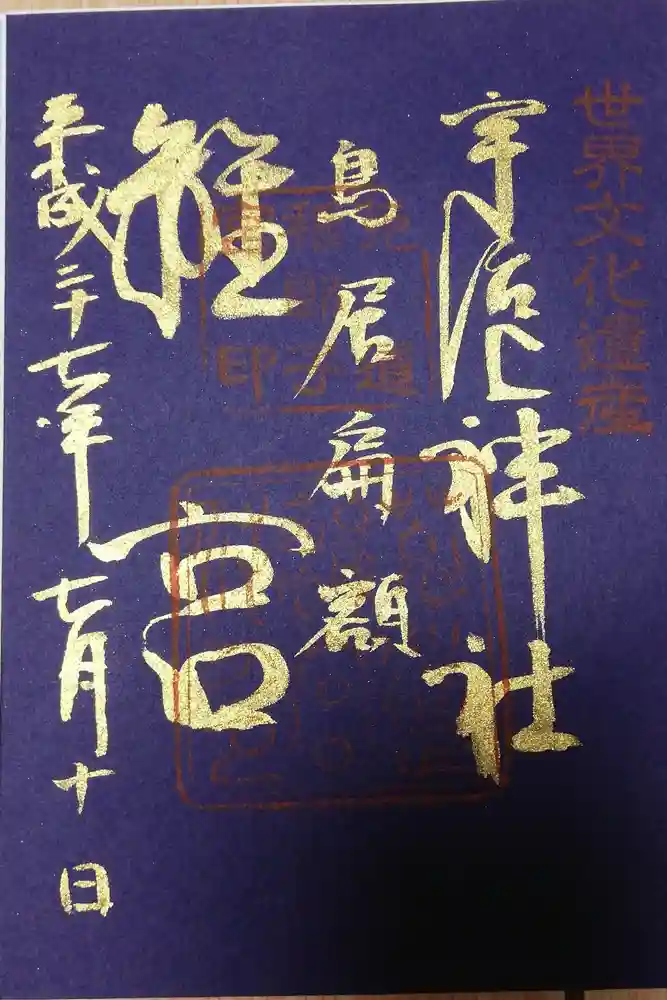 世界文化遺産
宇治神社
鳥居扁額
離宮
平成二十七年七月十日
道
稚郎子
御印